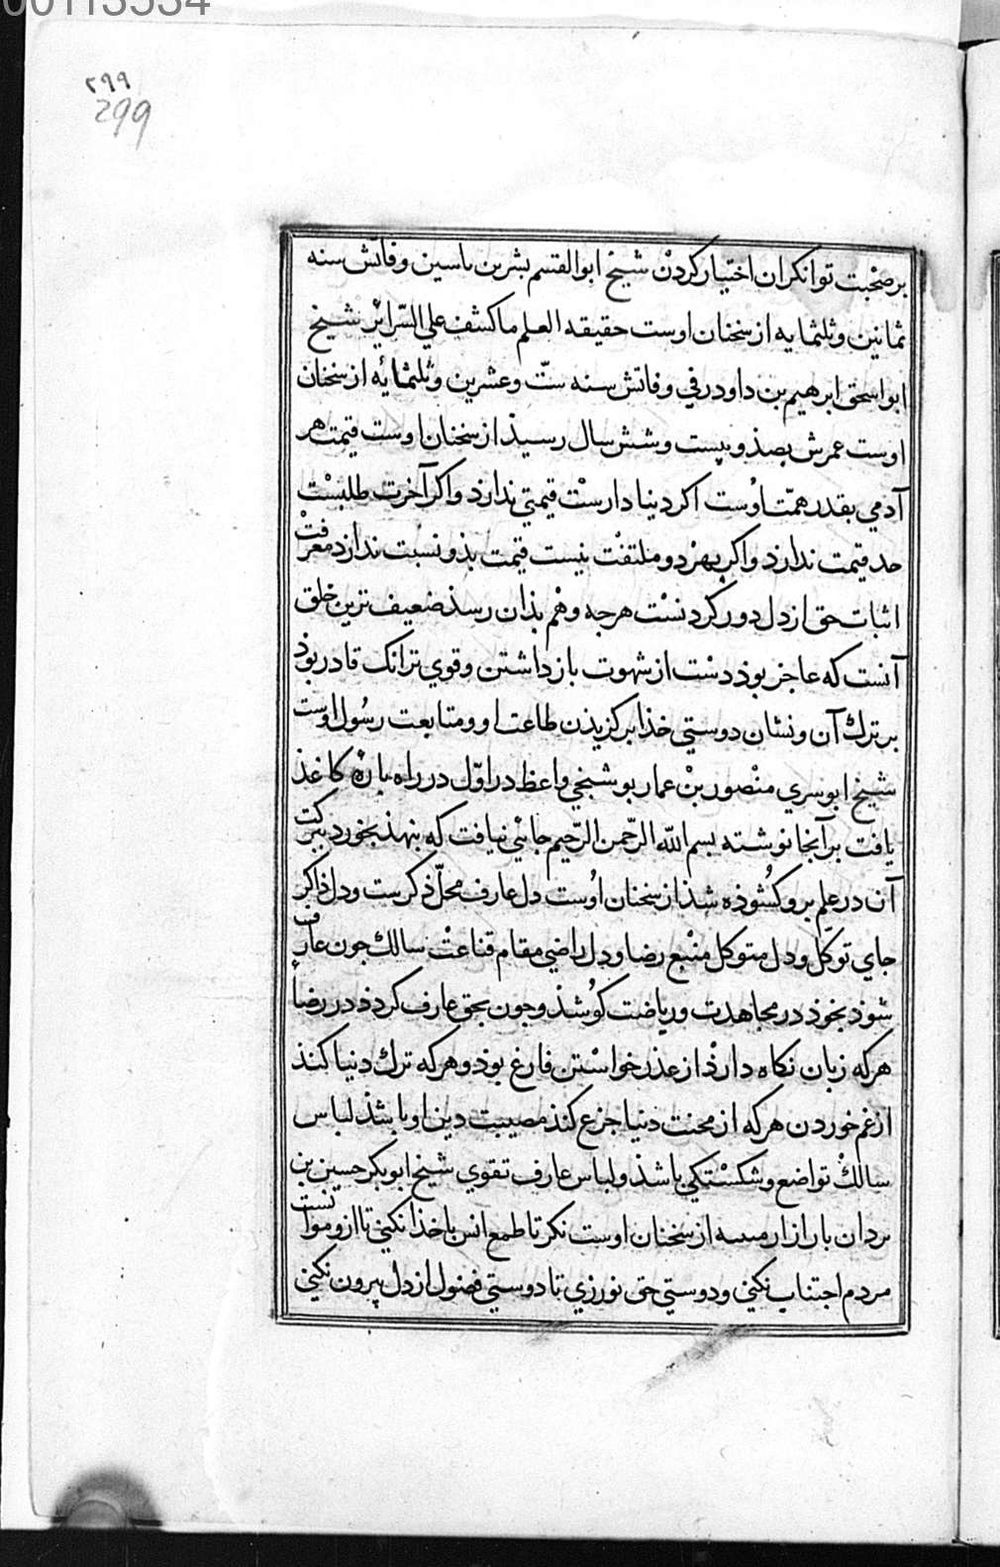 00113534
۲۹۹
299
بر صحبت توانکران اختیار کردن شیخ ابوالقسم بشر بن یاسین وفاتش سنه
ثمانین وثلثمایه از سخنان اوست حقیقه العلم ما کشف علی السّرایر شیخ
ابو اسحق ابرهیم بن داود رقی وفاتش سنه ستّ وعشرین وثلثمایه از سخنان
اوست عمرش بصذ وبیست وشش سال رسیذ از سخنان اوست قیمت هر
آدمی بقدر همّت اوست اکر دنیا دارست قیمتی ندارد واکر آخرت طلبست
حد قیمت ندارد واکر بهر دو ملتفت نیست قیمت بذو نسبت ندارد معرفت
اثبات حق از دل دور کردنست هرجه وهم بذان رسذ ضعیف ترین خلق
آنست که عاجز بوذ دست از شهوت باز داشتن وقوی تر انک قادر بوذ
بر ترک آن ونشان دوستی خذا بر کزیذن طاعت او ومتابعت رسول اوست
شیخ ابو سری منصور بن عمار بوشنجی واعظ در اوّل در راه پاره کاغذ
یافت بر آنجا نوشته بسم الله الرّحمن الرّحیم جائی نیافت که بنهذ بخورد ببرکت
آن در علم برو کشوذه شذ از سخنان اوست دل عارف محلّ ذکرست ودل ذاکر
جای توکل ودل متوکل منبع رضا ودل راضی مقام قناعت سالک جون عارف
شوذ بخوذ در مجاهدت وریاضت کوشذ وجون بحق عارف کردذ در رضا
هرکه زبان نکاه دارذ از عذر خواستن فارغ بوذ وهرکه ترک دنیا کند
از غم خوردن هرکه از محنت دنیا جزع کند مصیبت دین او باشذ لباس
سالک تواضع وشکستکی باشذ ولباس عارف تقوی شیخ ابوبکر حسین بن
یزدانیار از ارمیه از سخنان اوست نکر تا طمع انس با خذا نکنی تا از وموانست
مردم اجتناب نکنی ودوستی حق نورزی تا دوستی فضول از دل بیرون نکنی